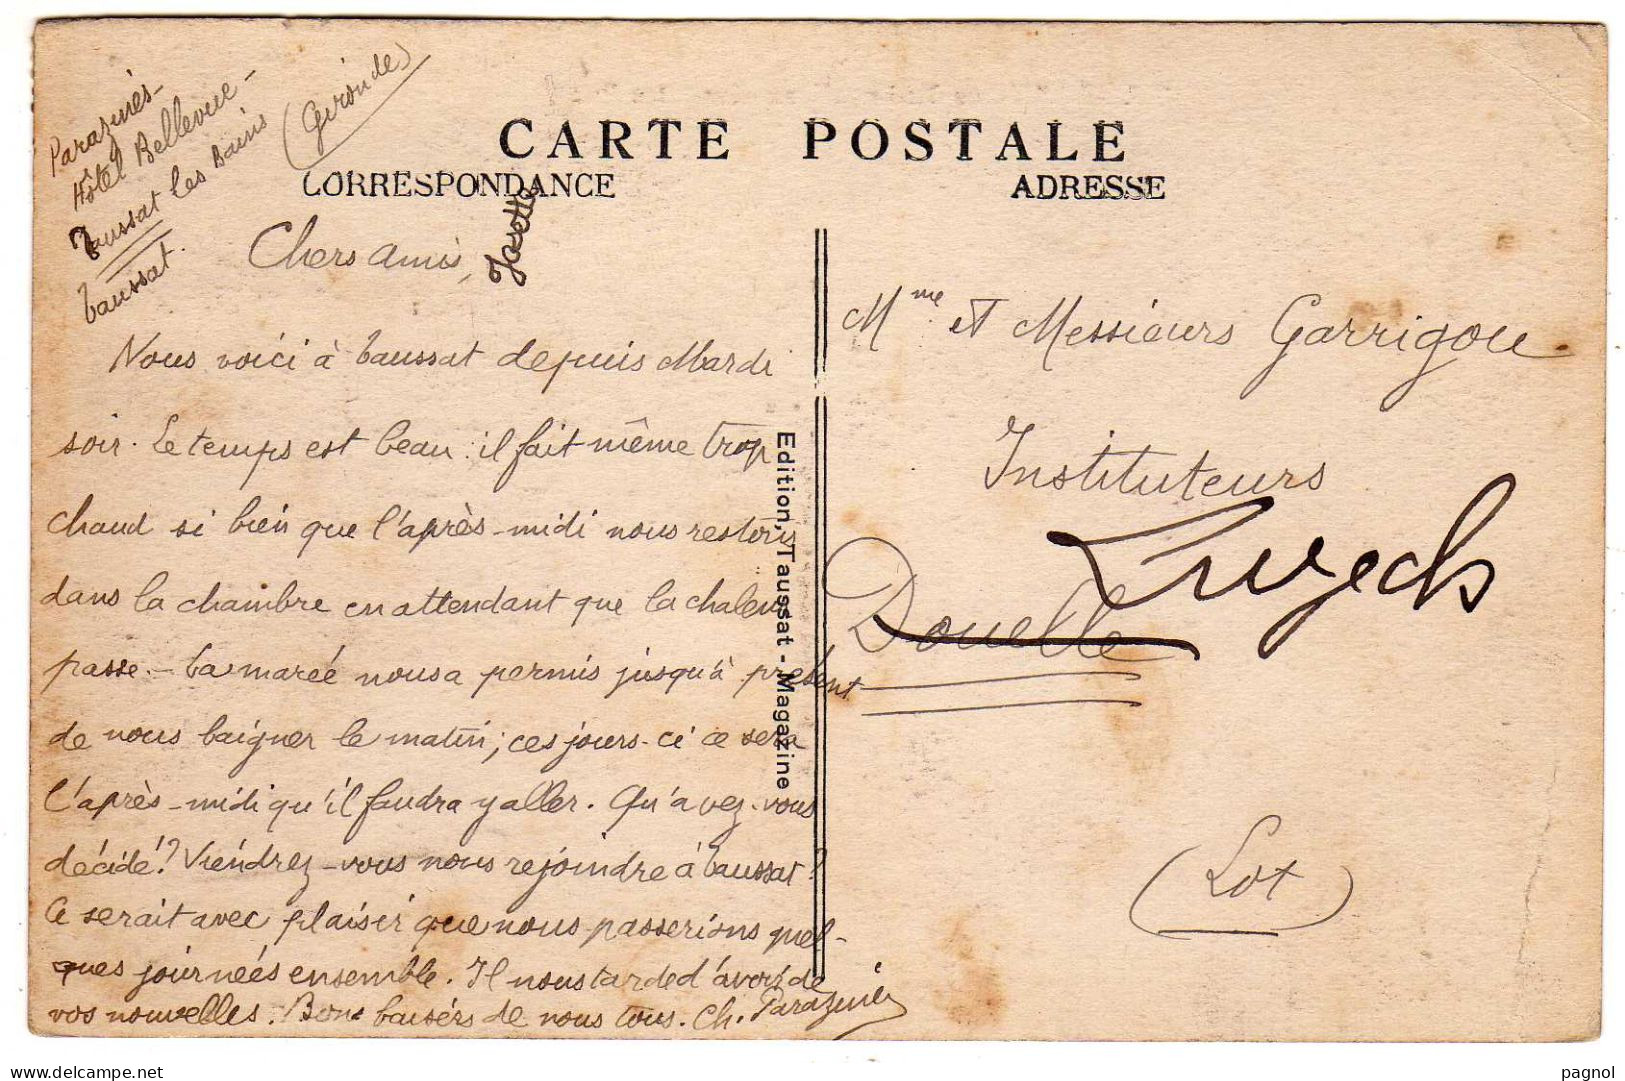 Parazinès-
Hôtel Bellevue-
Taussat les Bains (Gironde)
Taussat.
CARTE POSTALE
CORRESPONDANCE
ADRESSE
Josette
Chers amis,
Nous voici à Taussat depuis Mardi
soir. Le temps est beau : il fait même trop
chaud si bien que l'après-midi nous restons
dans la chambre en attendant que la chaleur
passe.- La marée nous a permis jusqu'à présent
de nous baigner le matin; ces jours-ci ce sera
l'après-midi qu'il faudra y aller. Qu'avez-vous
décidé? Viendrez-vous nous rejoindre à Taussat?
Ce serait avec plaisir que nous passerions quel-
ques journées ensemble. Il nous tarde d'avoir de
vos nouvelles. Bons baisers de nous tous. Ch. Parazinès
Edition, Taussat-Magazine
Mme et Messieurs Garrigou
Instituteurs
Luzech
Douelle
(Lot)
pagnol